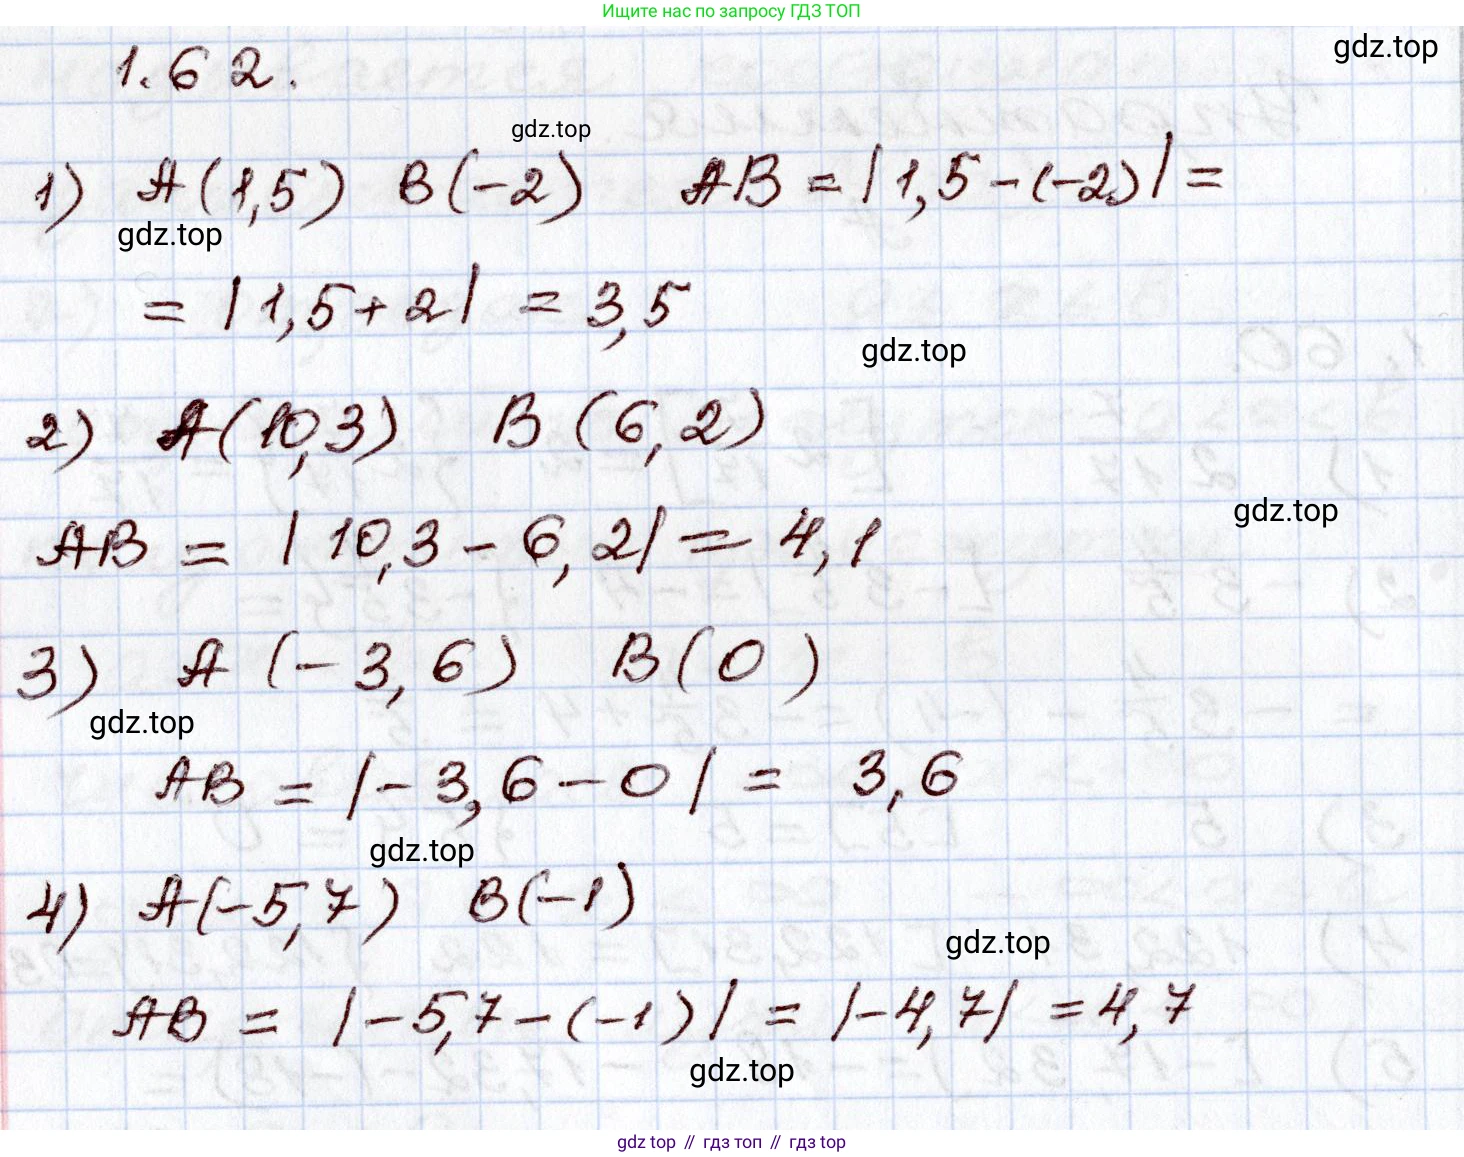 Ищите нас по запросу ГДЗ ТОП
gdz.top
1.62.
gdz.top
1) A(1,5) B(-2) AB = |1,5-(-2)| =
gdz.top
= |1,5+2| = 3,5
gdz.top
2) A(10,3) B(6,2)
gdz.top
AB = |10,3-6,2| = 4,1
3) A(-3,6) B(0)
gdz.top
AB = |-3,6-0| = 3,6
gdz.top
4) A(-5,7) B(-1)
gdz.top
AB = |-5,7-(-1)| = |-4,7| = 4,7
gdz.top
gdz top // гдз топ // гдз top